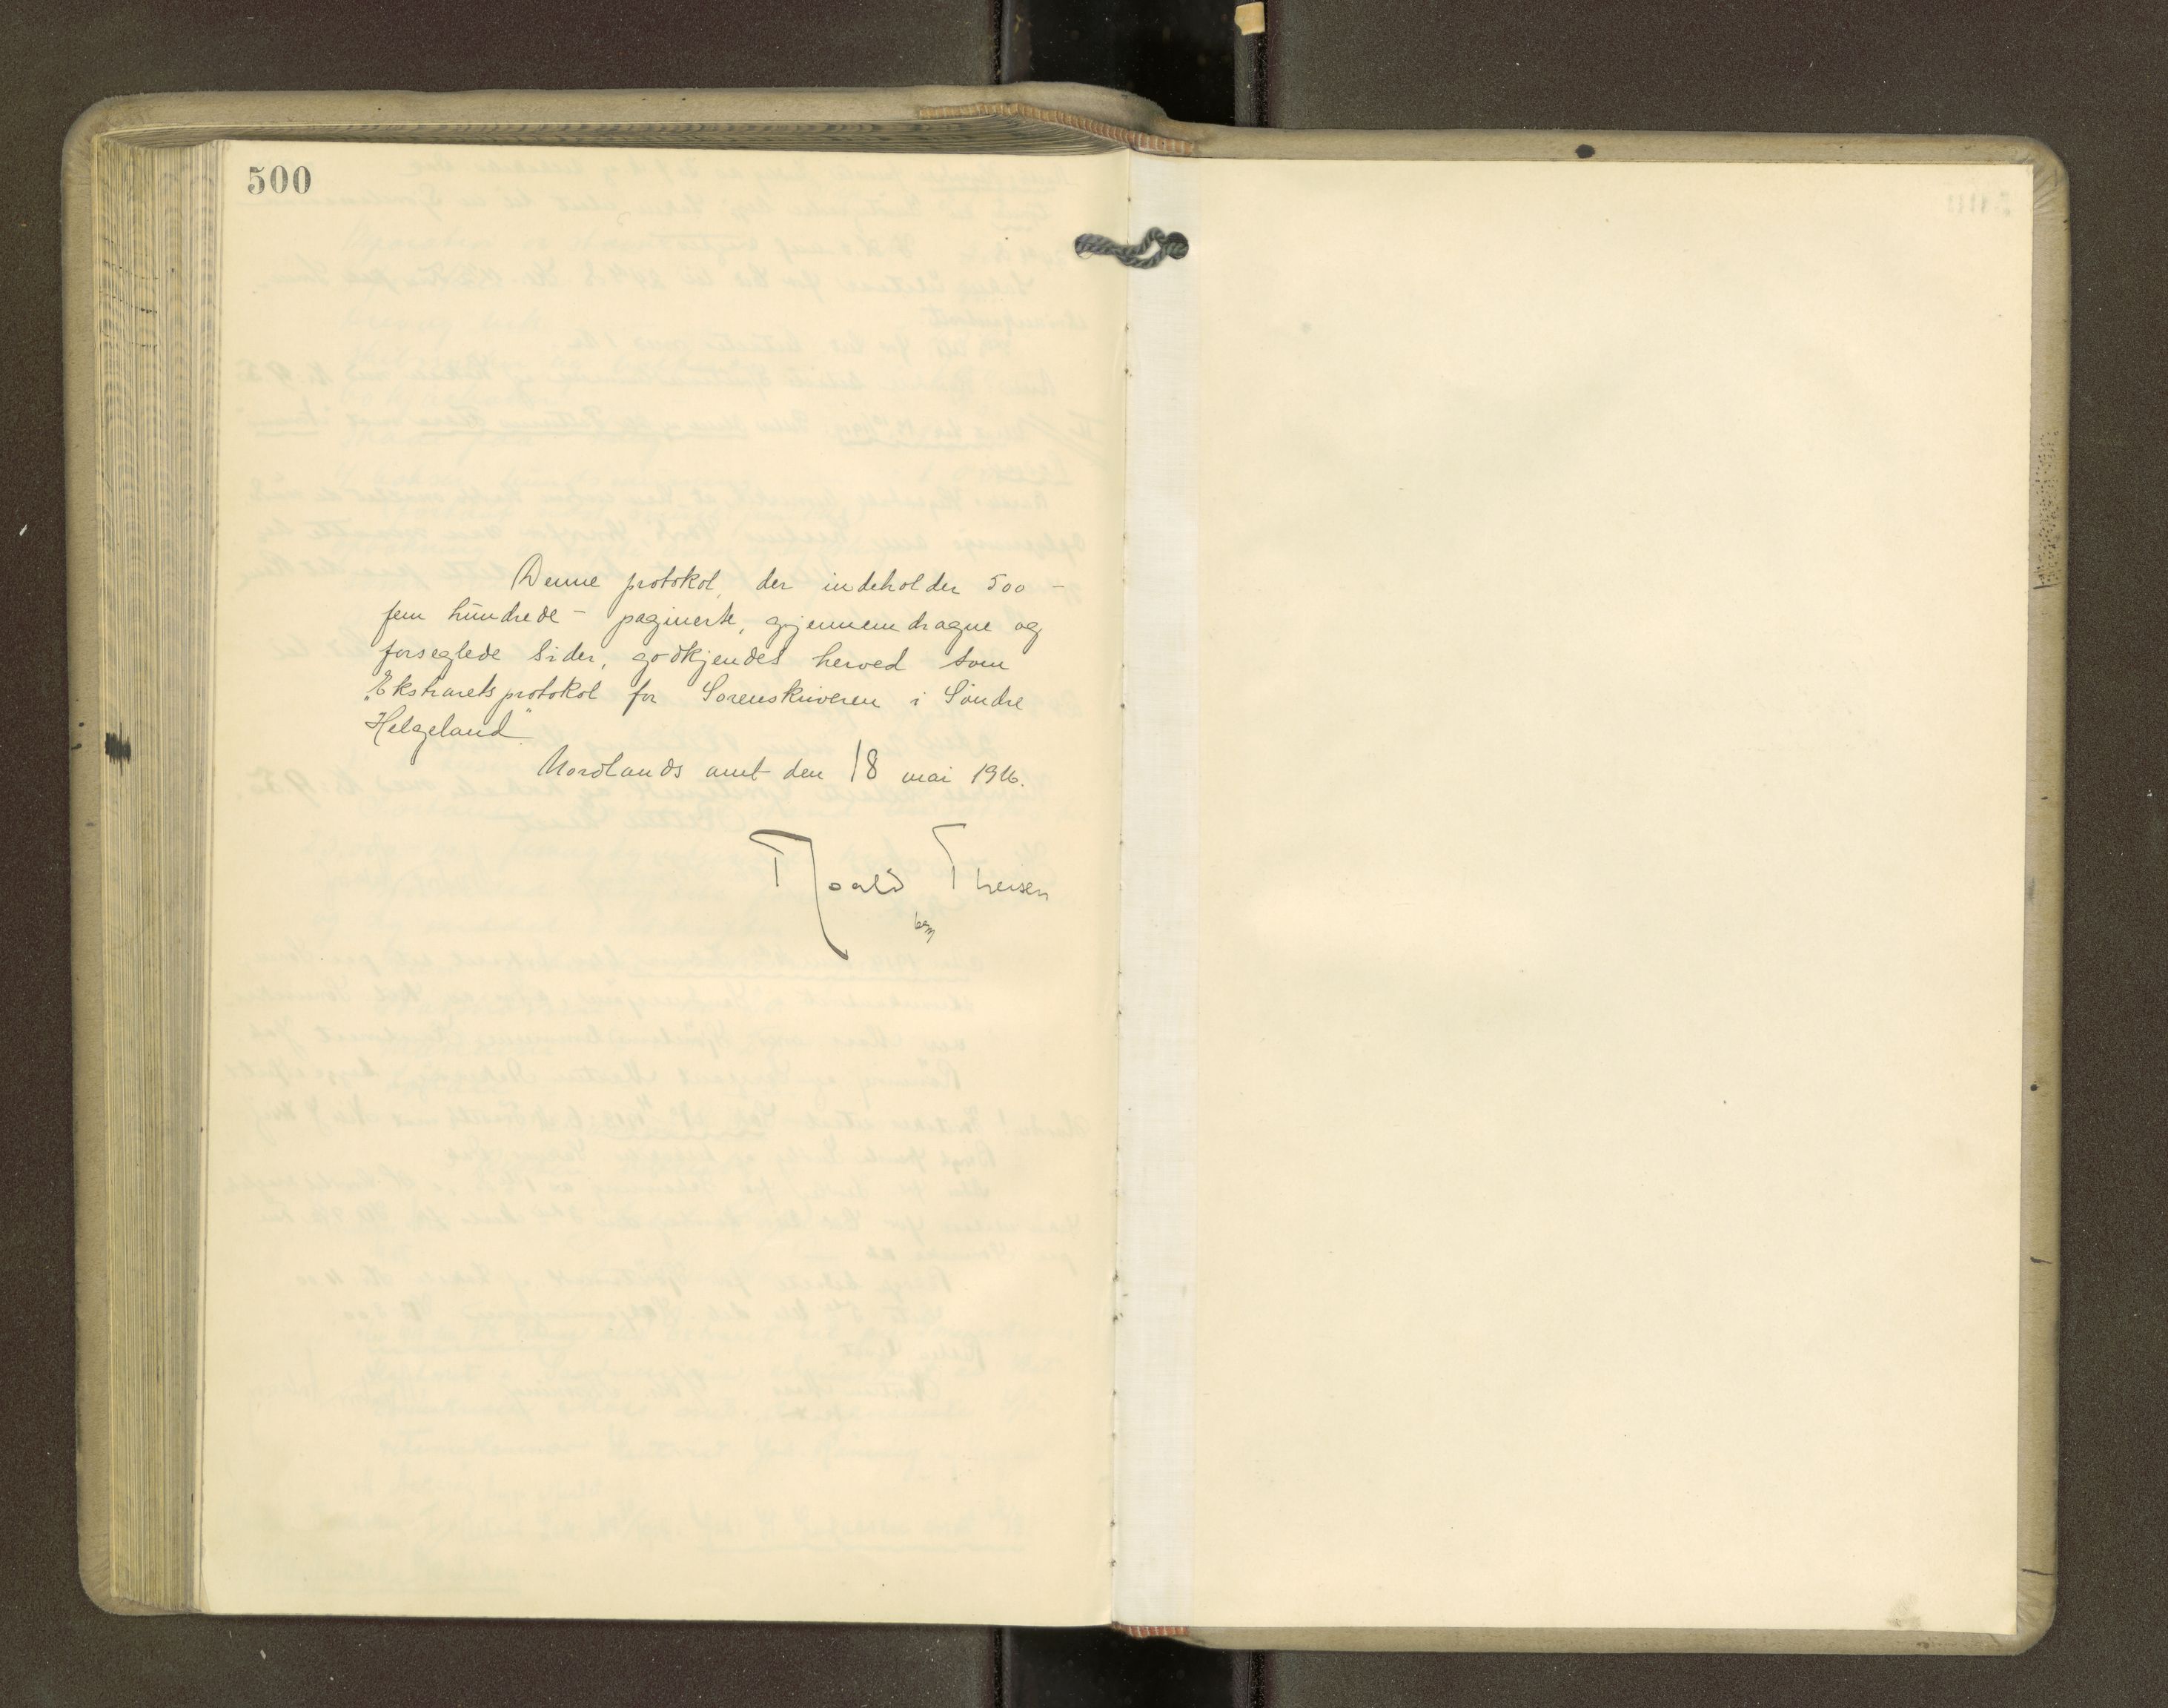 500
Denne protokol, der indeholder 500 -
fem hundrede - paginerte, gjennemdragne og
forseglede sider, godkjendes herved som
„Ekstraretsprotokol for Sorenskriveren i Søndre
Helgeland".
Nordlands amt den 18 mai 1916.
Roald Theisen